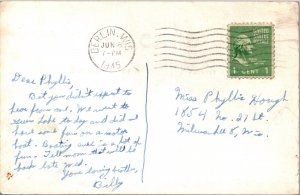 BERLIN, WIS.
JUN 6
7-PM
1945
UNITED STATES
1 CENT
Dear Phyllis,
Bet you didn't expect to
hear from me. We went to
Green Lake to day and did
have some fun on a motor
boat. Boating sure is a lot of
fun. Tell mom that will be
back late Wed.
Your loving brother,
Billy
Miss Phyllis Hough
1854 no. 27 St.
Milwaukee 8, Wis.